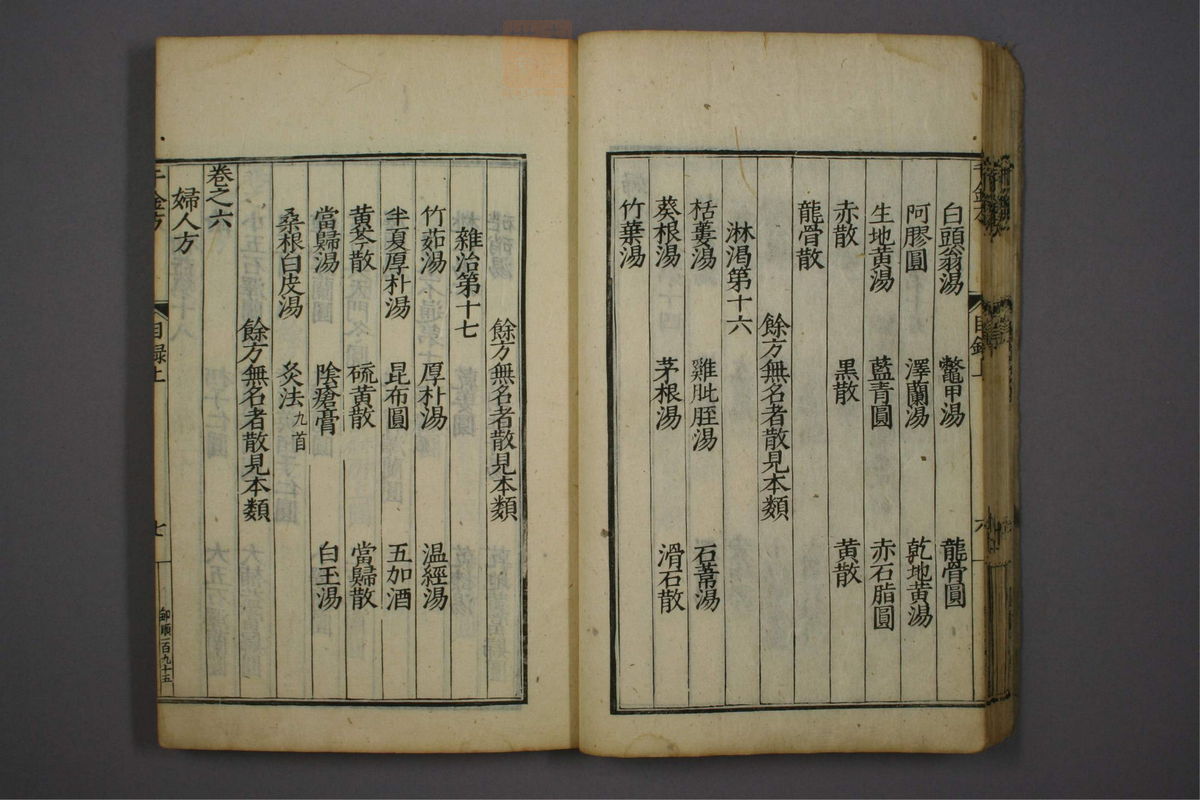 白頭翁湯 鼈甲湯 龍骨圓
阿膠圓 澤蘭湯 乾地黃湯
生地黃湯 藍青圓 赤石脂圓
赤散 黑散 黃散
龍骨散
餘方無名者散見本類
淋渴第十六
栝蔞湯 雞肶胵湯 石葦湯
葵根湯 茅根湯 滑石散
竹葉湯
餘方無名者散見本類
雜治第十七
竹茹湯 厚朴湯 温經湯
半夏厚朴湯 昆布圓 五加酒
黃芩散 硫黃散 當歸散
當歸湯 陰瘡膏 白玉湯
桑根白皮湯 灸法九首
餘方無名者散見本類
卷之六
婦人方
千金方 目録上 七